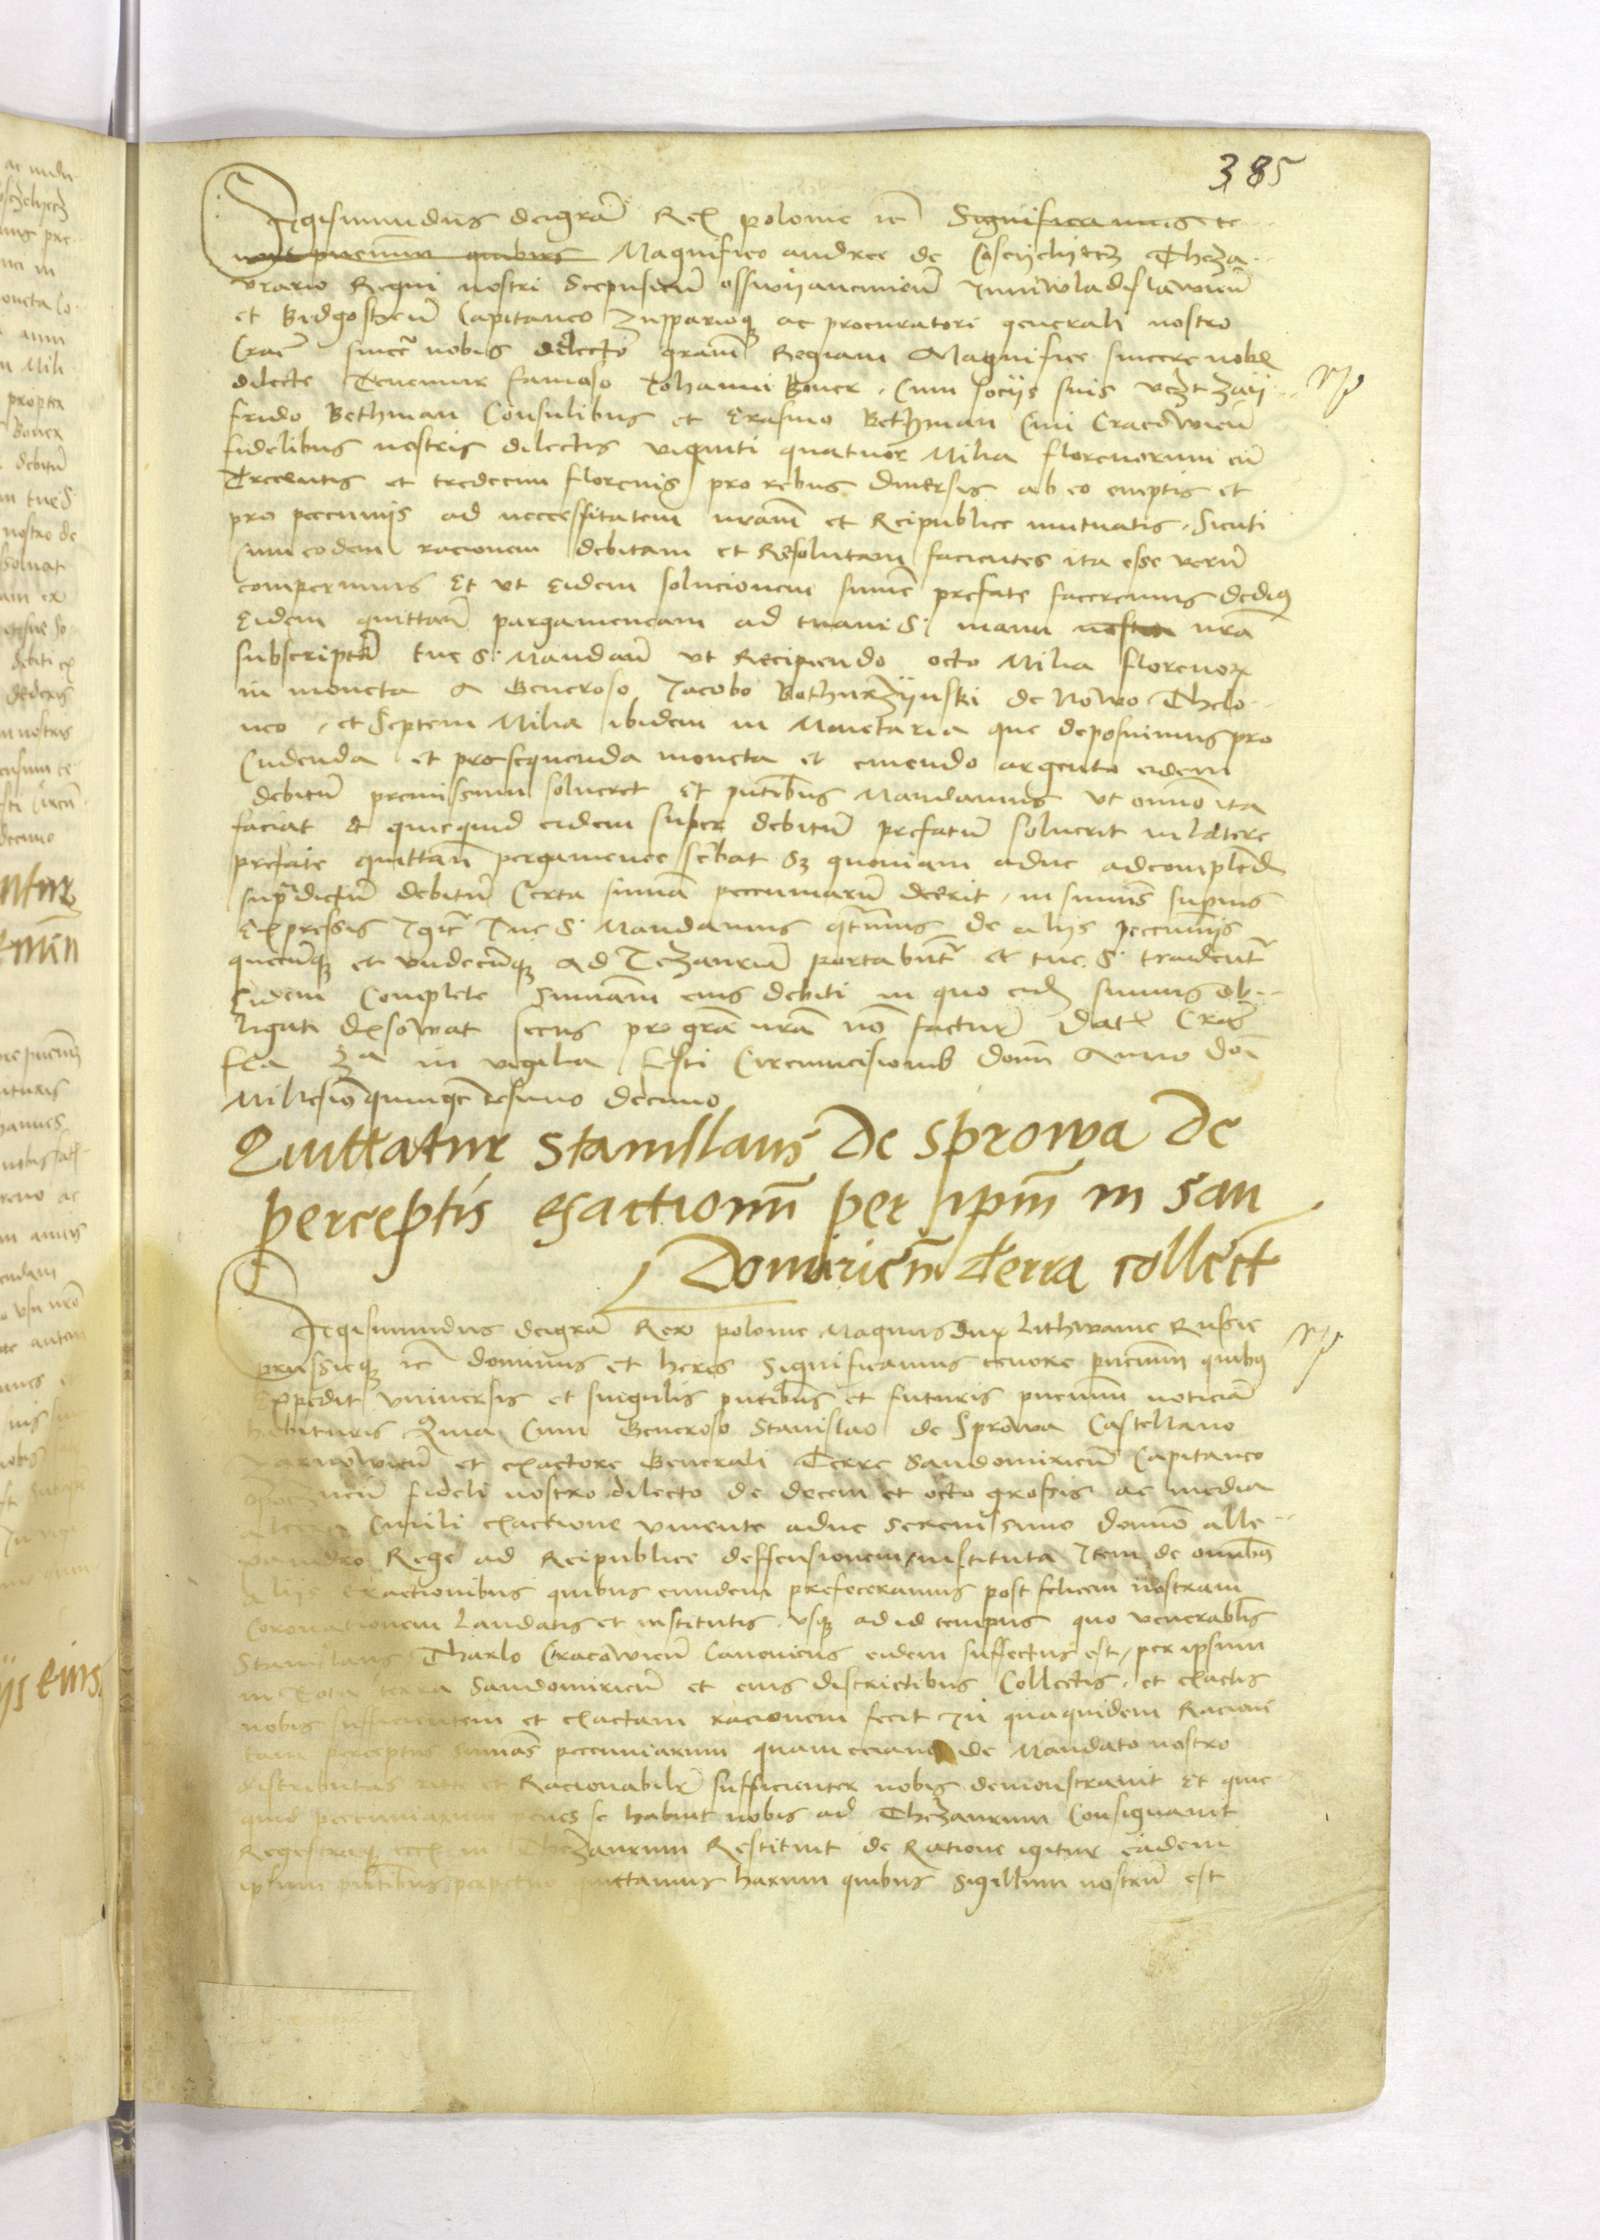 385
Sigismundus deigrã Rex polonie ic̃ Significamus te
nore pñcium quibus Magnifico andree de Coscyelyecz Theza
urario Regni nostri Scepusieñ osswyanczimeñ Juniwladislawieñ
et Bidgostieñ Capitaneo Zupparioqȝ ac procuratori generali nostro
Crac̃ sincẽ nobis dilecto grãm Regiam Magnifice sincere nobis
dilecte Tenemur famoso Johanni Boner Cum socijs suis vczt Zay
frido Bethman Consulibus et Erasmo Bethman Civi Cracowieñ
fidelibus nostris dilectis viginti quatuor Milia florenorum cũ
Trecentis et tredecim florenis pro rebus diversis ab eo emptis et
pro pecunijs ad necessitatem nrãm et Reipublice mutuatis Sicuti
Cum eodem racionem debitam et Resolutam facientes ita esse verũ
comperimus Et ut Eidem solucionem sum̃e prefate faceremus dedimꝫ
Eidem quittanc̃ pargameneam ad tuam S: manu nostra nrã
subscriptã tue S: Mandañ ut Recipiendo octo Milia florenoꝝ
in moneta a Generoso Jacobo Bethurzynski de Nowo Thelo
neo et Septem Milia ibidem in Monetaria que deposuimus pro
Cudenda et prosequenda moneta et emendo argento eidem
debitũ premissum solveret Et pñtibus Mandamus ut omnĩo ita
faciat Et quicquid eidem super debitũ prefatũ solverit in latere
prefate quittanc̃ pergamenee scribat Sȝ quoniam adhuc ad complend
suprã dictũ debitũ Certa sum̃a pecuniarũ deerit in sum̃is supius
Expressis Igit̃ Tue S: Mandamus qt̃nus de alijs pecunijs
quecũqȝ et undecũqȝ ad Tezaurũ portabunt̃ et tue S: tradent̃
Eidem Complete Sum̃am eius debiti in quo eidẽ sumus ob
ligati Exsolvat secus pro grã nrã nõ factur̃ Dat̃ Crac̃
feria 3ª in vigilia festi Circumcisionis domĩ Anno dõi
Millesiõ quingẽtesimo decimo
Quittatur Stanislaus De Sprowa de
perceptis exactionũ per ipm̃ in San
Domirieñ terra collect
Sigismundus deigrã Rex polonie Magnus dux Lithwanie Russie
prussieqȝ ic̃ dominus et heres Significamus tenore pñcium quibꝫ
Expedit universis et singulis pñtibus et futuris pñcium noticiã
habituris Quia Cum Generoso Stanislao de Sprowa Castellano
Zarnowieñ et exactore Generali Terre Sandomirieñ Capitaneo
opoczneñ fideli nostro dilecto de decem et octo grossis ac media
altera Civili exactione vivente adhuc Serenissimo domño alle
xandro Rege ad Reipublice deffensionem instituta Item de omnibꝫ
alijs exactionibus quibus eundem prefeceramus post felicem nostram
Coronationem Laudatis et institutis usqȝ ad id tempus quo venerabilis
Stanislaus Tharlo Cracowieñ Canonicus eidem suffectus est per ipsum
in tota terra Sandomirieñ et eius districtibus Collectis et exactis
nobis sufficientem et exactam racionem fecit In qua quidem Racione
tam perceptas sum̃as pecuniarum quam eciam de Mandato nostro
distributas rite et Racionabilr̃ sufficienter nobis demonstravit Et quic
quid pecuniarum penes se habuit nobis ad Thezaurum Consignavit
Regestraqȝ in Thezaurum Restituit de Ratione igitur eadem
ipsum pñtibus perpetuo quittamus harum quibus Sigillum nostrũ est